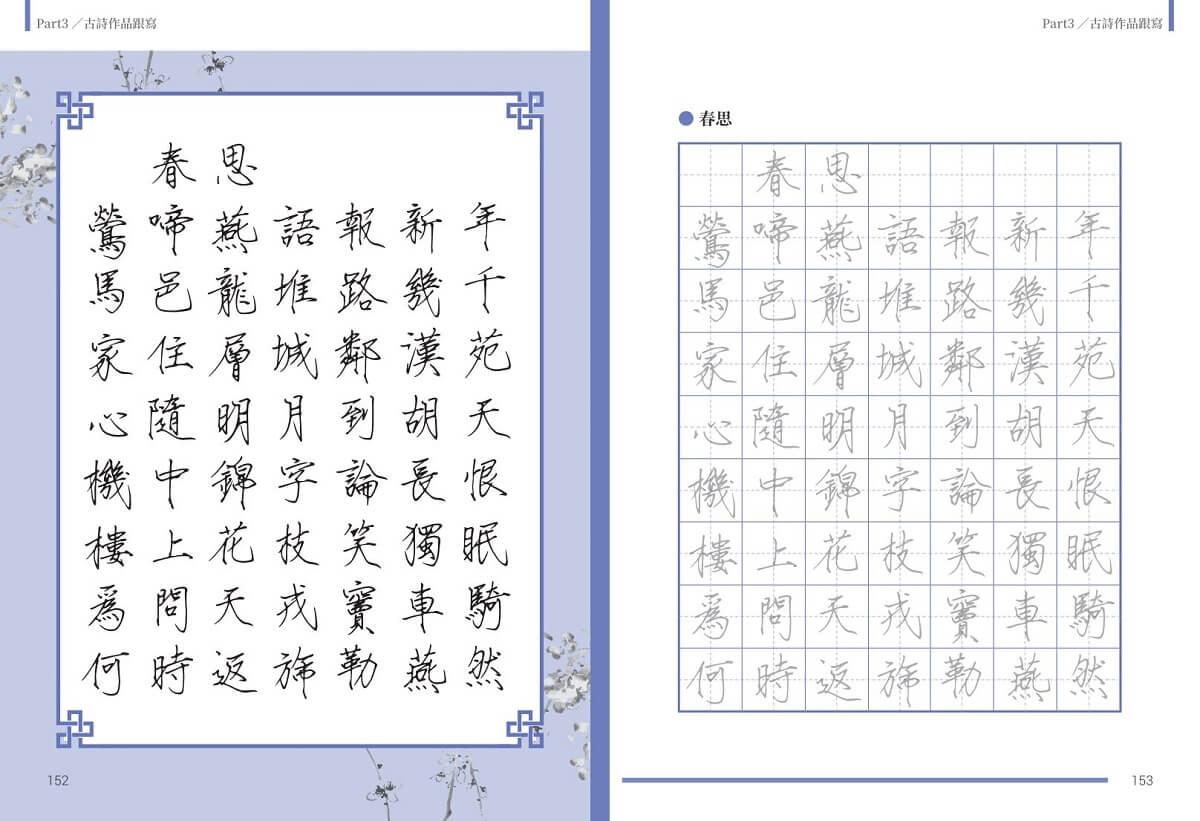 Part3／古詩作品跟寫
春思
鶯啼燕語報新年
馬邑龍堆路幾千
家住層城鄰漢苑
心隨明月到胡天
機中錦字論長恨
樓上花枝笑獨眠
為問天戎竇車騎
何時返旆勒燕然
152
Part3／古詩作品跟寫
春思
春思
鶯啼燕語報新年
馬邑龍堆路幾千
家住層城鄰漢苑
心隨明月到胡天
機中錦字論長恨
樓上花枝笑獨眠
為問天戎竇車騎
何時返旆勒燕然
153